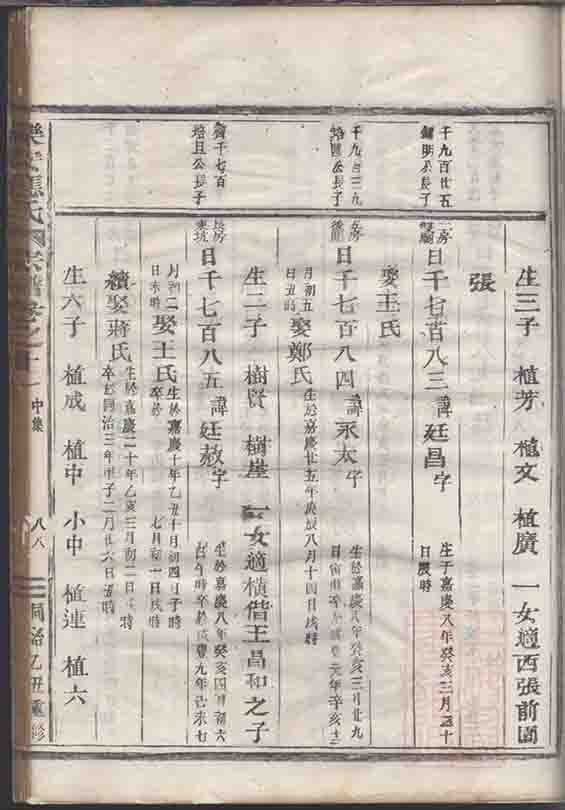 生三子 植芳 植文 植廣 一女適西張前園
張
千九百廿五
長子
日千七百八三諱廷昌字
生于嘉慶八年癸亥三月
日辰時
娶王氏
千九百三九
公長子
房
日千七百八四諱永太字
生於嘉慶八年癸亥三月廿九
日 時卒於咸豐元年辛亥十二
月初五
日丑時
娶鄭氏
生於嘉慶廿五年庚辰八月十四日戌時
生二子 樹賢 樹崖 一女適橫偕王昌和之子
齊千七百
培且公長子
房
日千七百八五諱廷赦字
生於嘉慶八年癸亥四月初六
日午時卒於咸豐九年己未七
月初二
日未時
娶王氏
生於嘉慶十年乙丑十月初四日子時
卒於 七月初一日戌時
續娶蔣氏
生於嘉慶二十年乙亥三月初二日 時
卒於同治三年甲子二月廿六日丑時
生六子 植成 植中 小中 植連 植六
氏 宗譜卷之十一 中集
八八
同治乙丑重修